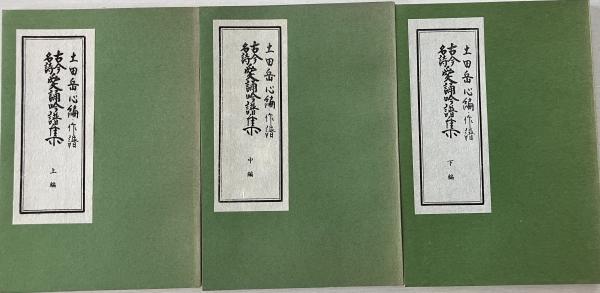 土田岳心編 作譜
古今名詩愛誦吟譜集
上編
土田岳心編 作譜
古今名詩愛誦吟譜集
中編
土田岳心編 作譜
古今名詩愛誦吟譜集
下編